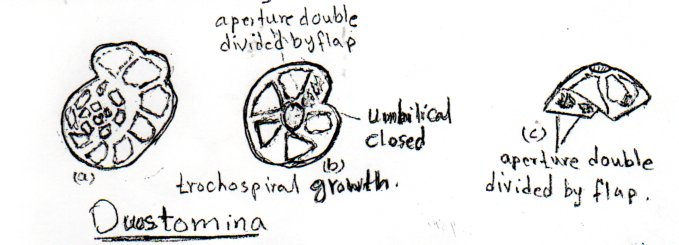 aperture double
divided by flap
umbilical
closed
(a)
(b)
trochospiral growth.
(c)
aperture double
divided by flap.
Duostomina